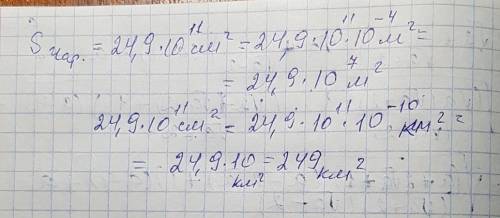 S нар. = 24,9·10¹¹см² = 24,9·10¹¹·10⁻⁴м² =
= 24,9·10⁷м²
24,9·10¹¹см² = 24,9·10¹¹·10⁻¹⁰км² =
= 24,9·10 км² = 249 км²